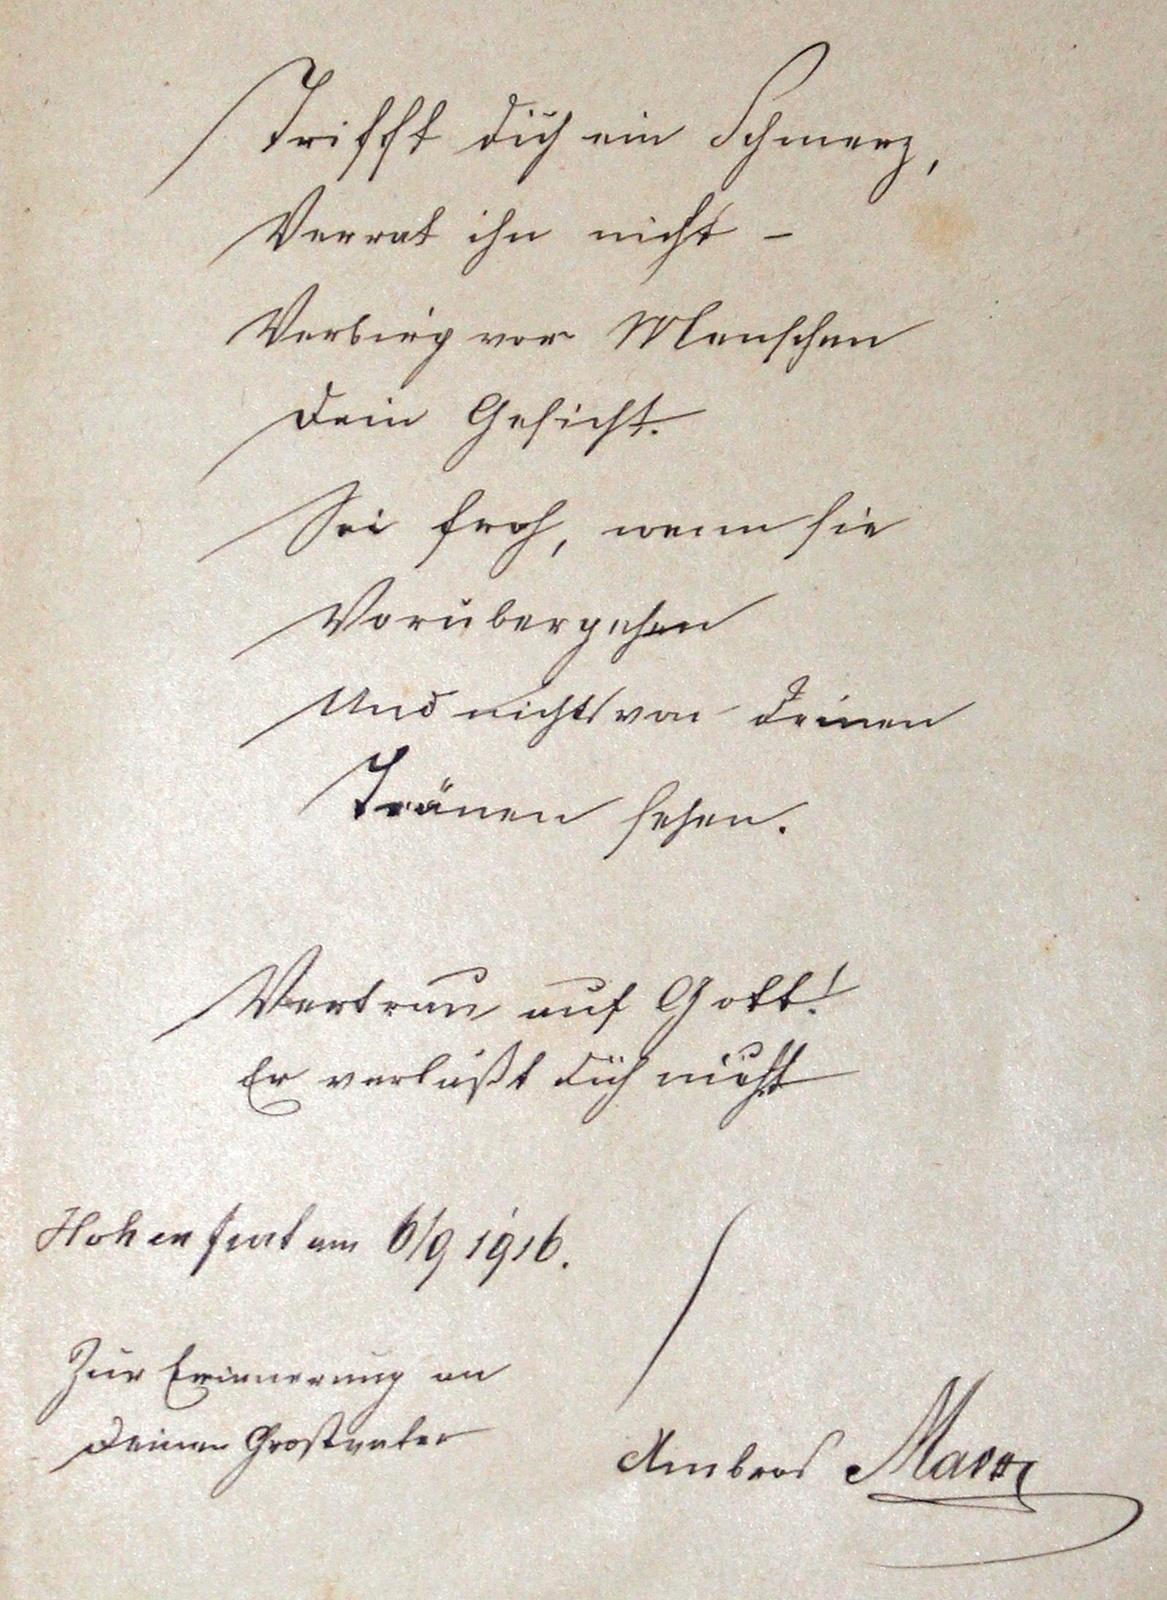 Trifft dich ein Schmerz,
Verrat ihn nicht –
Verbirg vor Menschen
Dein Gesicht.
Sei froh, wenn sie
Vorübergehen
Und nichts von deinen
Tränen sehen.
Vertrau auf Gott!
Er verläßt dich nicht
Hohenfurt am 6/9 1916.
Zur Erinnerung an
Deinen Grosvater
Ambros